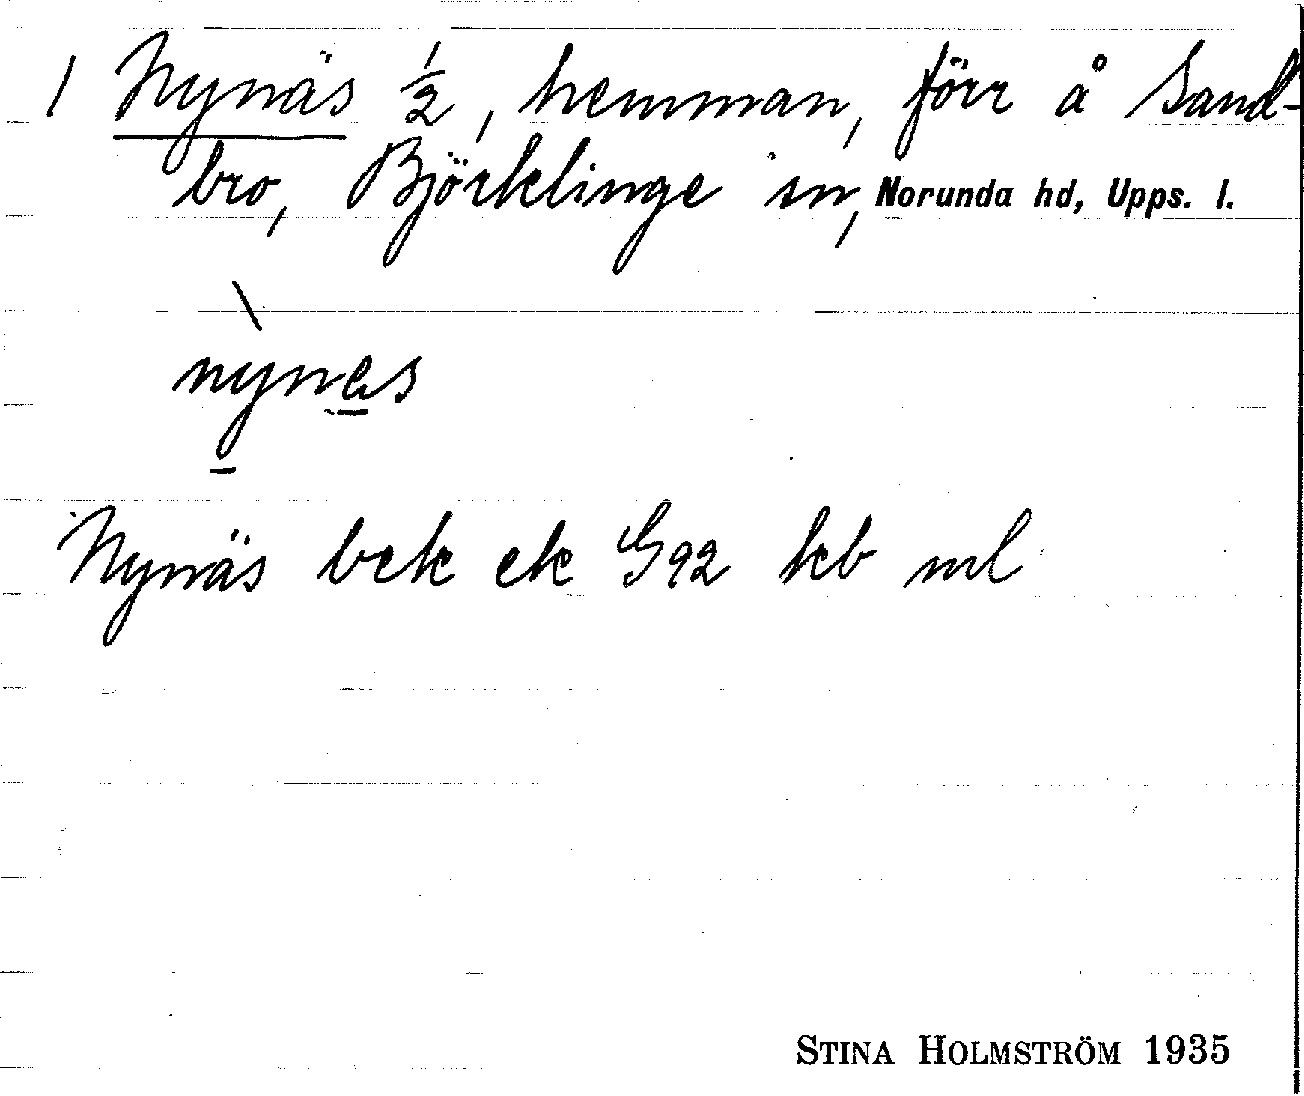 1 Nynäs ½, hemman, förr å Sand-
bro, Björklinge sn, Norunda hd, Upps. l.
\
nynes
Nynäs bek ek G92 kb ml
STINA HOLMSTRÖM 1935